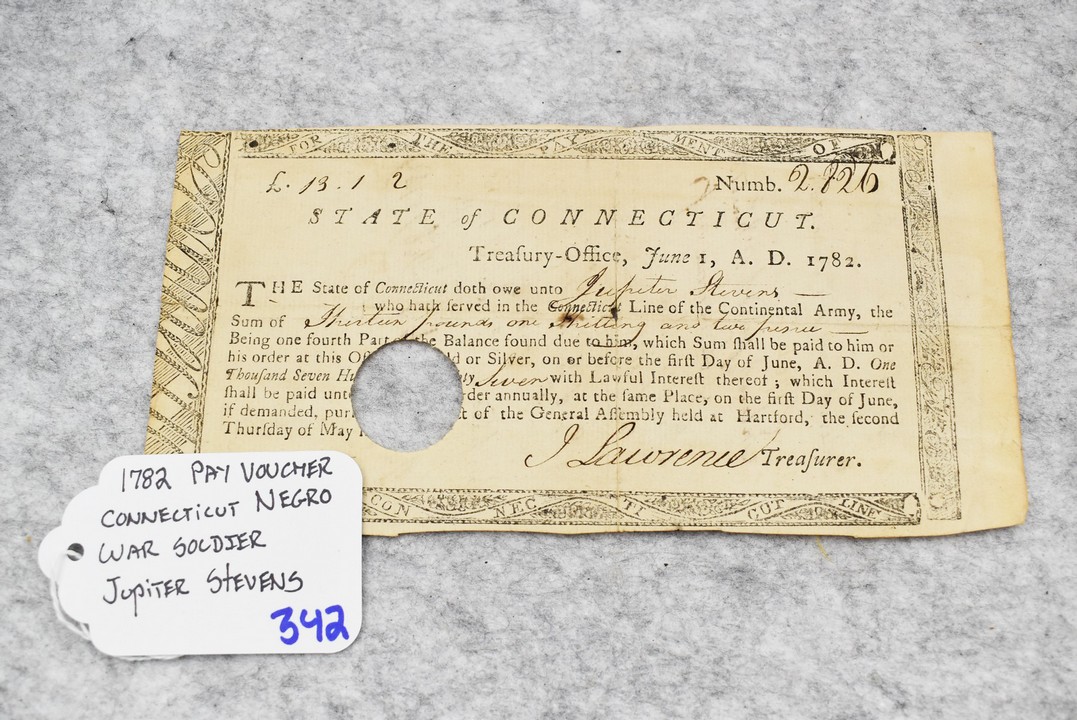 FOR THE PAY MENT OF
£. 13. 1 2 Numb. 2.826
STATE of CONNECTICUT.
Treaſury-Office, June 1, A. D. 1782.
THE State of Connecticut doth owe unto Jupiter Stevens
who hath ſerved in the Connecticut Line of the Continental Army, the
Sum of Thirteen pounds one Shilling and two pence
Being one fourth Part the Balance found due to him, which Sum ſhall be paid to him or
his order at this or Silver, on or before the firſt Day of June, A. D. One
Thouſand Seven Seven with Lawful Intereſt thereof; which Intereſt
ſhall be paid annually, at the ſame Place, on the firſt Day of June,
if demanded, of the General Aſſembly held at Hartford, the ſecond
Thurſday of May
J Lawrence Treaſurer.
CON NEC TI CUT LINE
1782 PAY VOUCHER
CONNECTICUT NEGRO
WAR SOLDIER
JUPITER STEVENS
342